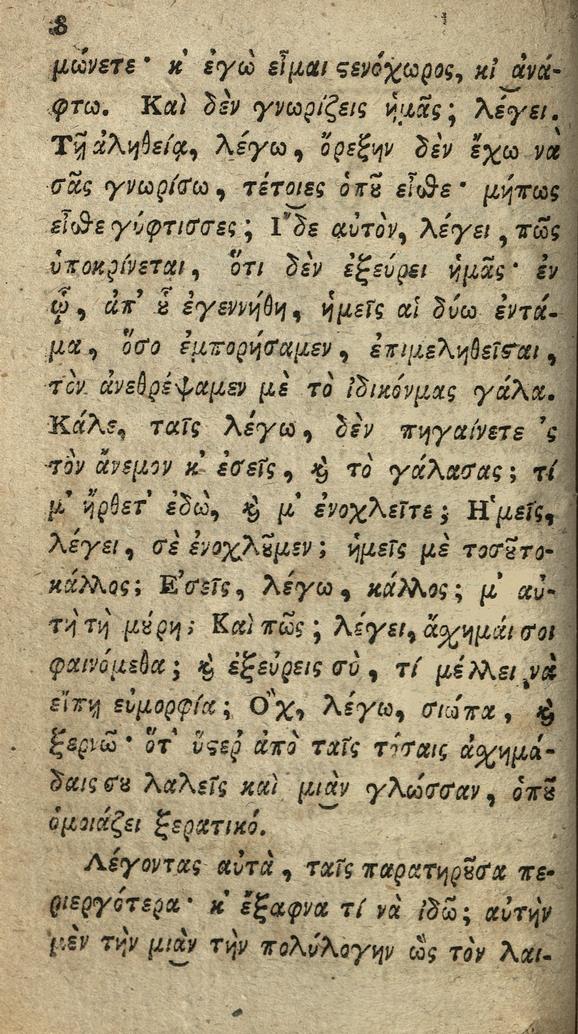 8
μώνετε· κ' ἐγὼ εἶμαι ϛενόχωρος, κἰ ἀνά-
φτω. Καὶ δὲν γνωρίζεις ἡμᾶς; λέγει.
Τῇ ἀληθείᾳ, λέγω, ὄρεξην δὲν ἔχω νὰ
σᾶς γνωρίσω, τέτοιες ὁπȣ͂ εἶσθε· μήπως
εἶσθε γύφτισσες; Ἴδε αὐτὸν, λέγει, πῶς
ὑποκρίνεται, ὅτι δὲν ἐξεύρει ἡμᾶς· ἐν
ᾧ, ἀπ' ȣ̔͂ ἐγεννήθη, ἡμεῖς αἱ δύω ἐντά-
μα, ὅσο ἐμπορήσαμεν, ἐπιμεληθεῖσαι,
τὸν ἀνεθρέψαμεν μὲ τὸ ἰδικόνμας γάλα.
Κάλε, ταῖς λέγω, δὲν πηγαίνετε 'ς
τὸν ἄνεμον κ' ἐσεῖς, ϗ̀ τὸ γάλασας; τί
μ' ἤρθετ' ἐδὼ, ϗ̀ μ' ἐνοχλεῖτε; Ἡμεῖς,
λέγει, σὲ ἐνοχλȣ͂μεν; ἡμεῖς μὲ τοσȣ͂το-
κάλλος; Ἐσεῖς, λέγω, κάλλος; μ' αὐ-
τὴ τὴ μȣ́ρη; Καὶ πῶς; λέγει, ἄχημάι σοι
φαινόμεθα; ϗ̀ ἐξεύρεις σὺ, τί μέλλει νὰ
εἴπῃ εὐμορφία; Ὂχ, λέγω, σιώπα, ϗ̀
ξερνῶ· ὅτ' ὕϛερ' ἀπὸ ταῖς τόσαις ἀχημά-
δαις σȣ λαλεῖς καὶ μιὰν γλώσσαν, ὁπȣ͂
ὁμοιάζει ξερατικό.
Λέγοντας αὐτὰ, ταῖς παρατηρȣ͂σα πε-
ριεργότερα· κ' ἔξαφνα τί νὰ ἰδῶ; αὐτὴν
μὲν τὴν μιὰν τὴν πολύλογην ὣς τὸν λαι-